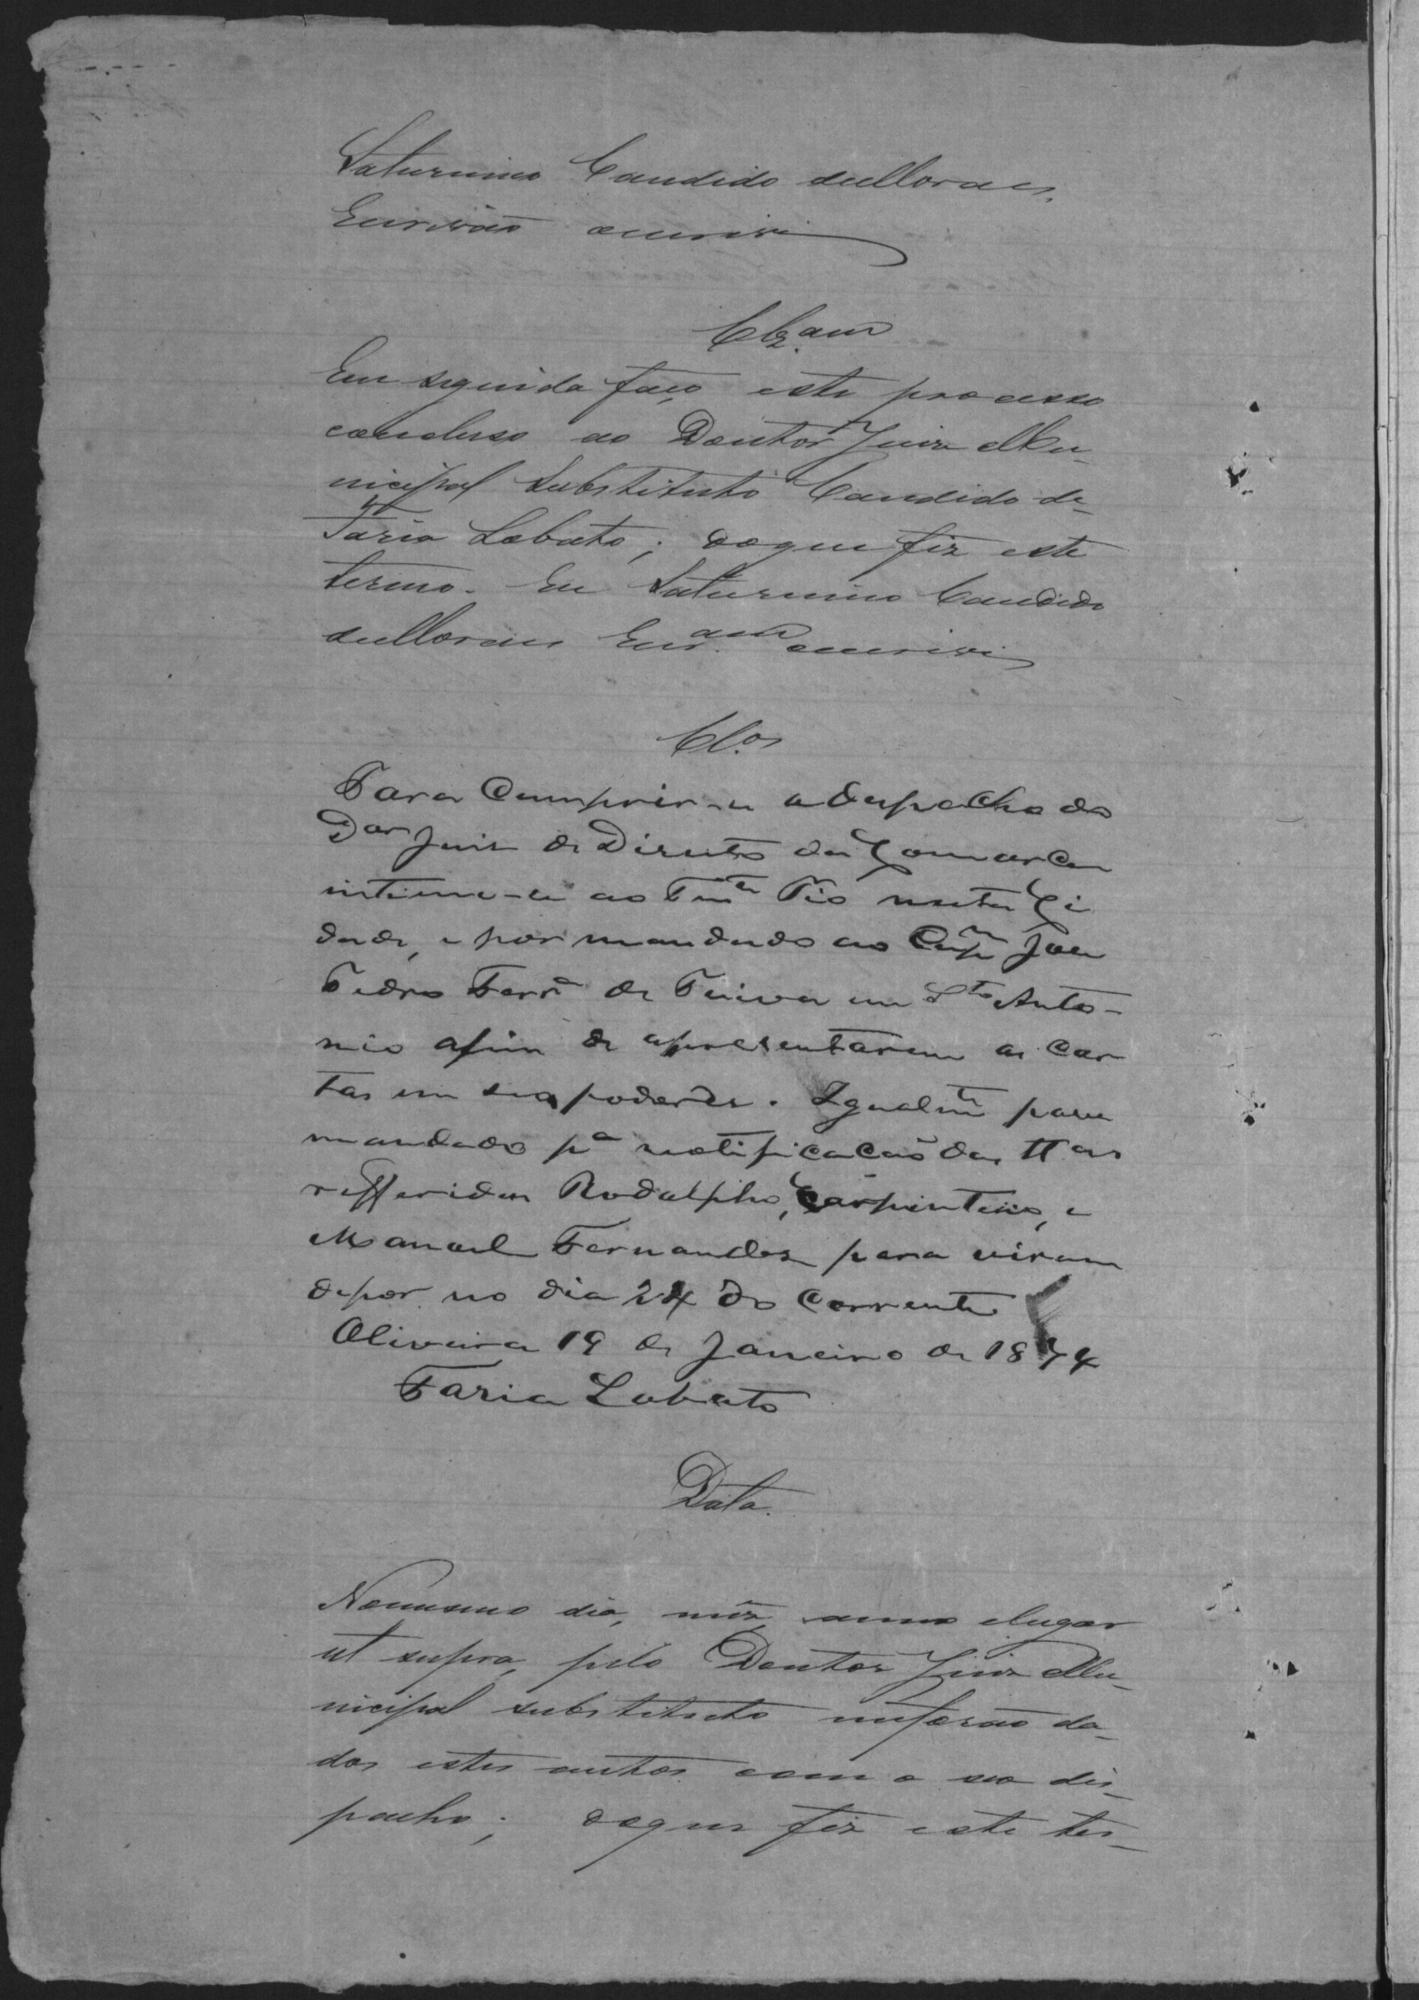 Saturnino Candido de Moraes,
Escrivão escrevi
Clz.am
Em seguida faço este processo
concluso ao Doutor Juiz Mu-
nicipal Substituto Candido de
Faria Lobato; doque fiz este
termo. Eu Saturnino Candido
de Moraes Escr.am escrevi
Cl.os
Para cumprir-se o despacho do
Dor Juiz de Direito da Comarca
intime-se ao Tente Pio nesta Ci
dade, e por mandado ao Capm João
Pedro Ferra de Paiva em Sto Anto-
nio afim de apresentarem as car
tas em seo poder. Igualmte passe
mandado pa notificacão das ttas
refferidas Rodolpho, Carpinteiro, e
Manoel Fernandes para virem
depor no dia 24 do corrente
Oliveira 19 de Janeiro de 1874
Faria Lobato
Data.
Nomesmo dia, mez, anno elugar
ut supra, pelo Doutor Juiz Mu-
nicipal substituto me forão da-
dos estes autos com o seo dis-
pacho; doque fiz este ter-